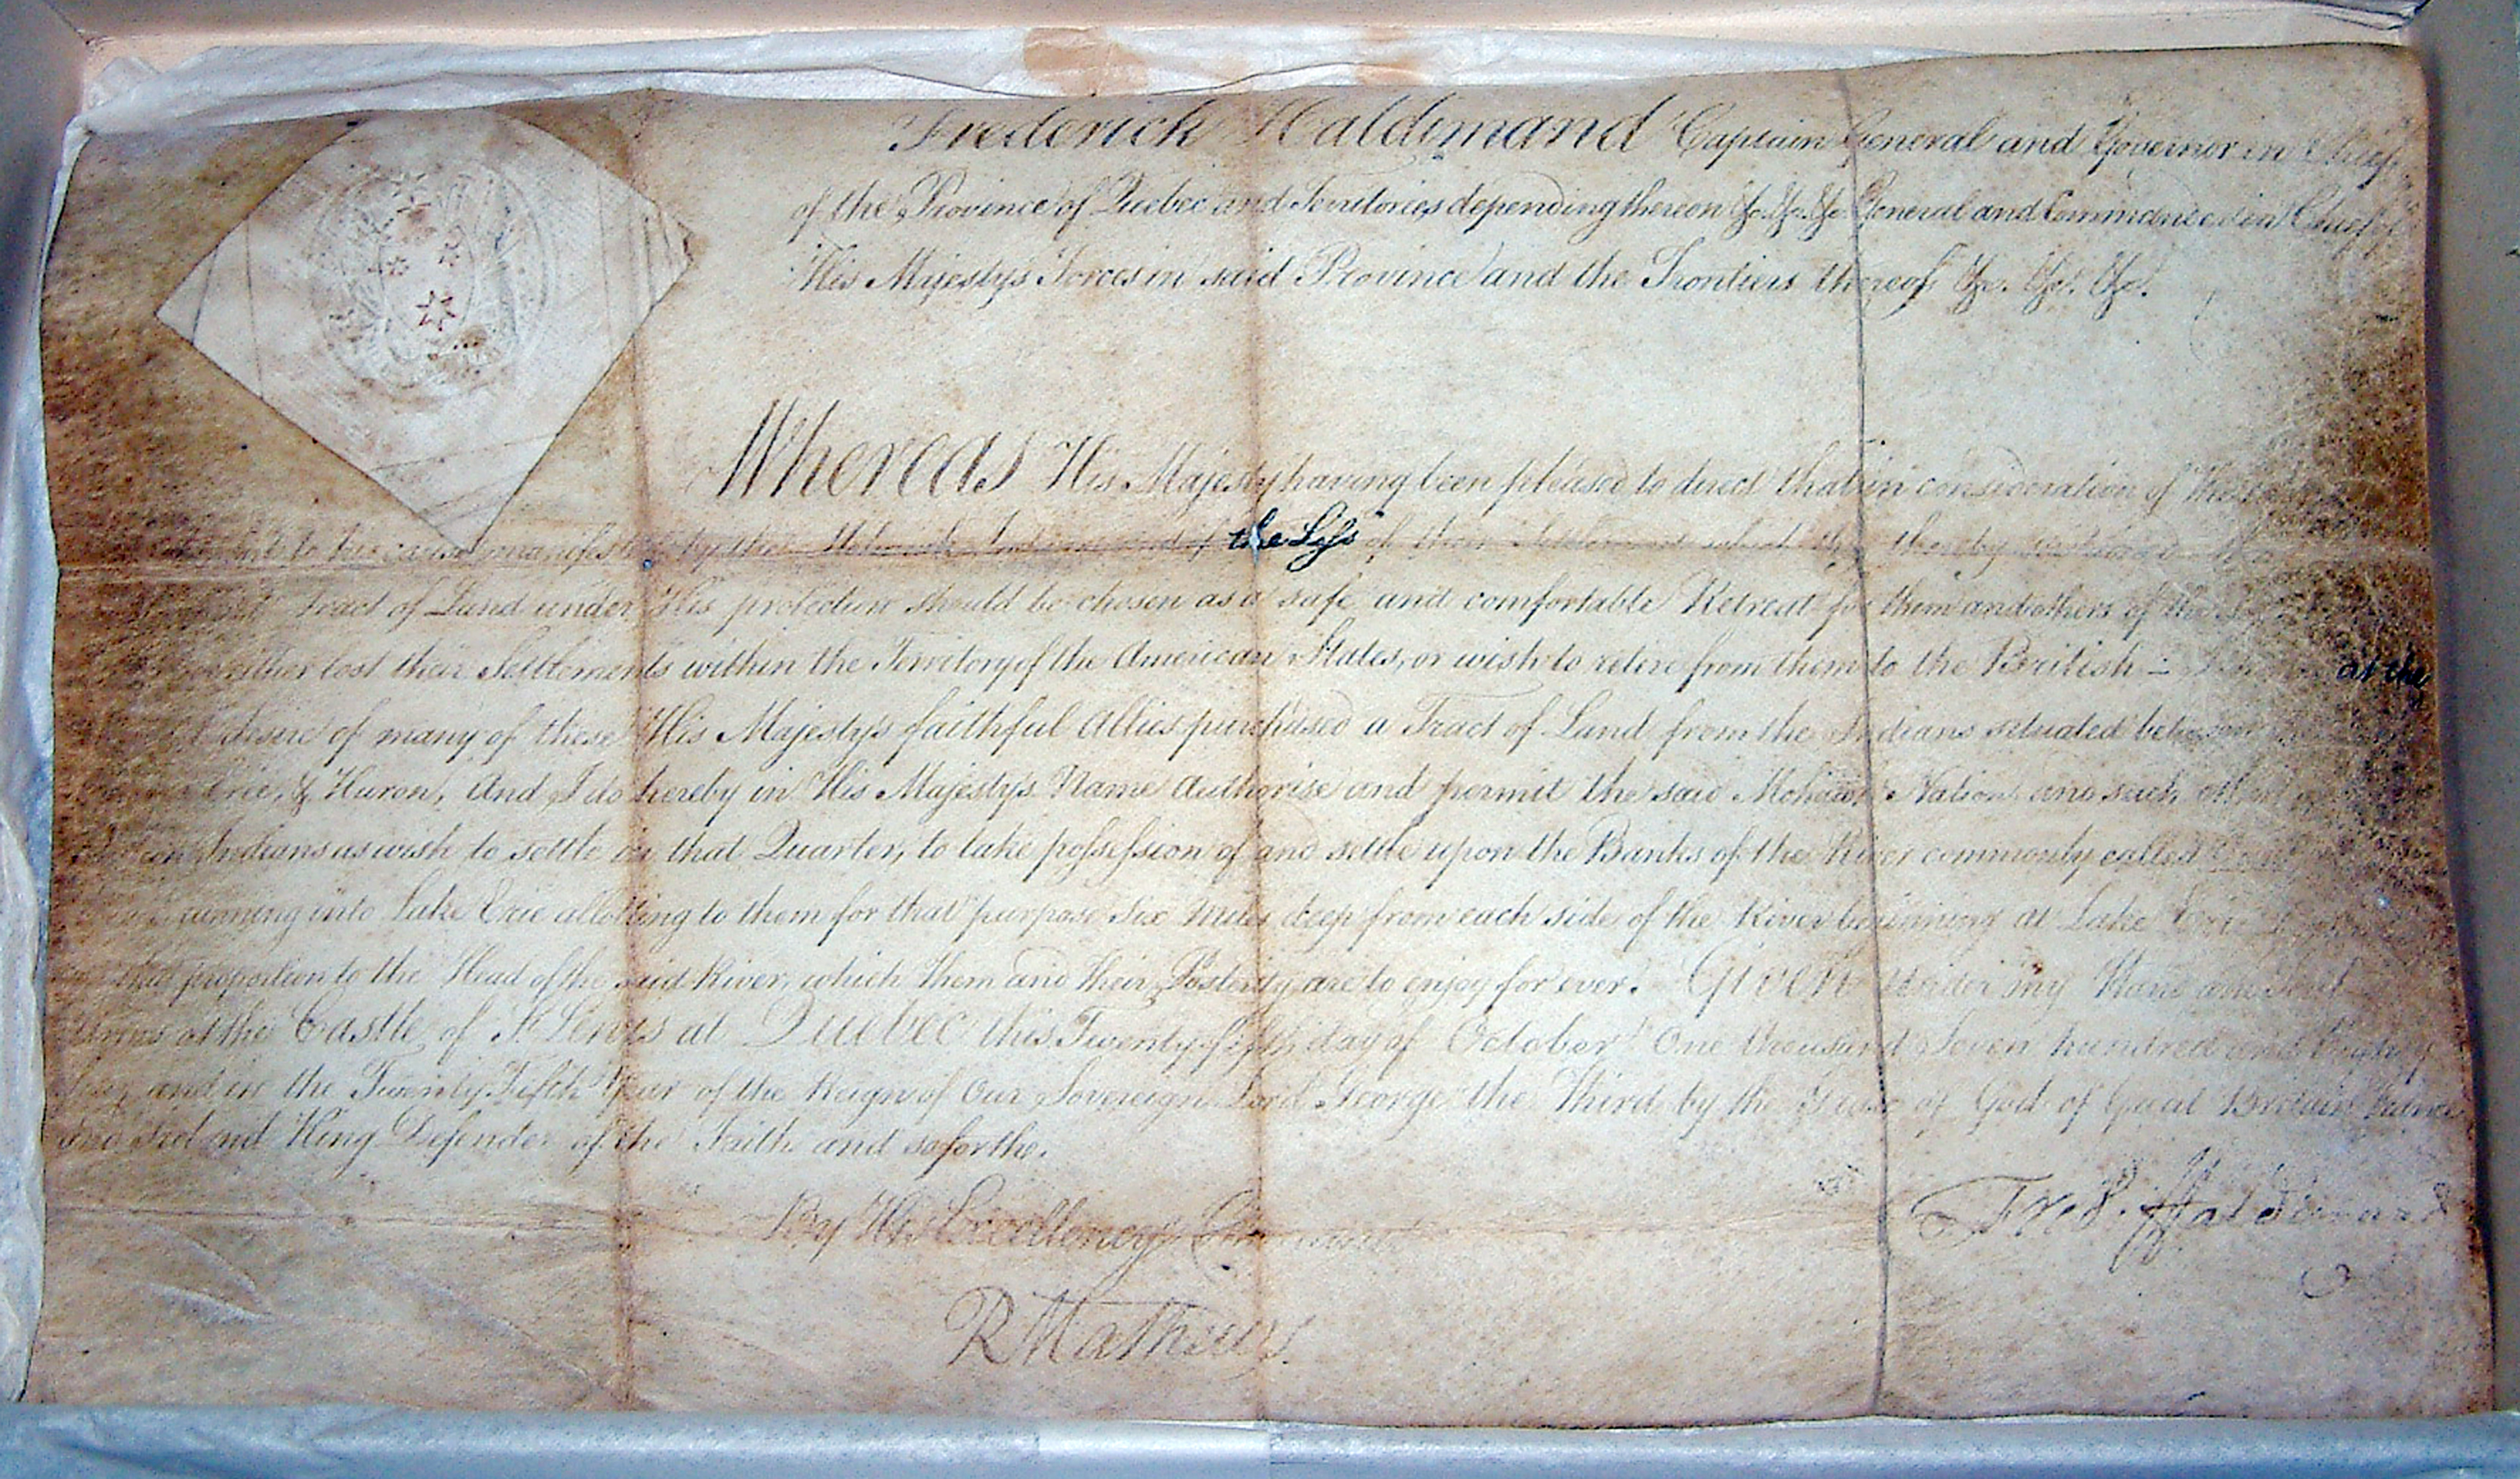 Frederick Haldimand Captain General and Governor in Chief
of the Province of Quebec and Territories depending thereon &c. &c. &c. General and Commander in Chief of
His Majesty's Forces in said Province and the Frontiers thereof &c. &c. &c.
Whereas His Majesty having been pleased to direct that in consideration of the
to his cause manifested by the Mohawk Indians and of the Loss of their Settlement which they thereby sustained
Tract of Land under His protection should be chosen as a safe and comfortable Retreat for them and others of the
either lost their Settlements within the Territory of the American States, or wish to retire from them to the British - at the
desire of many of these His Majesty's faithful Allies purchased a Tract of Land from the Indians situated between
Erie, & Huron, And I do hereby in His Majesty's Name Authorise and permit the said Mohawk Nation and such other
Indians as wish to settle in that Quarter, to take possession of and settle upon the Banks of the River commonly called
running into Lake Erie allotting to them for that purpose Six Miles deep from each side of the River beginning at Lake Erie
that proportion to the Head of the said River, which them and their Posterity are to enjoy for ever. Given under my Hand and Seal
Arms at the Castle of St Lewis at Quebec this Twenty fifth day of October One thousand Seven hundred and Eighty
four and in the Twenty Fifth Year of the Reign of Our Sovereign Lord George the Third by the Grace of God of Great Britain France
and Ireland King Defender of the Faith and so forth.
Fred: Haldimand
By His Excellency's Command
R Mathews